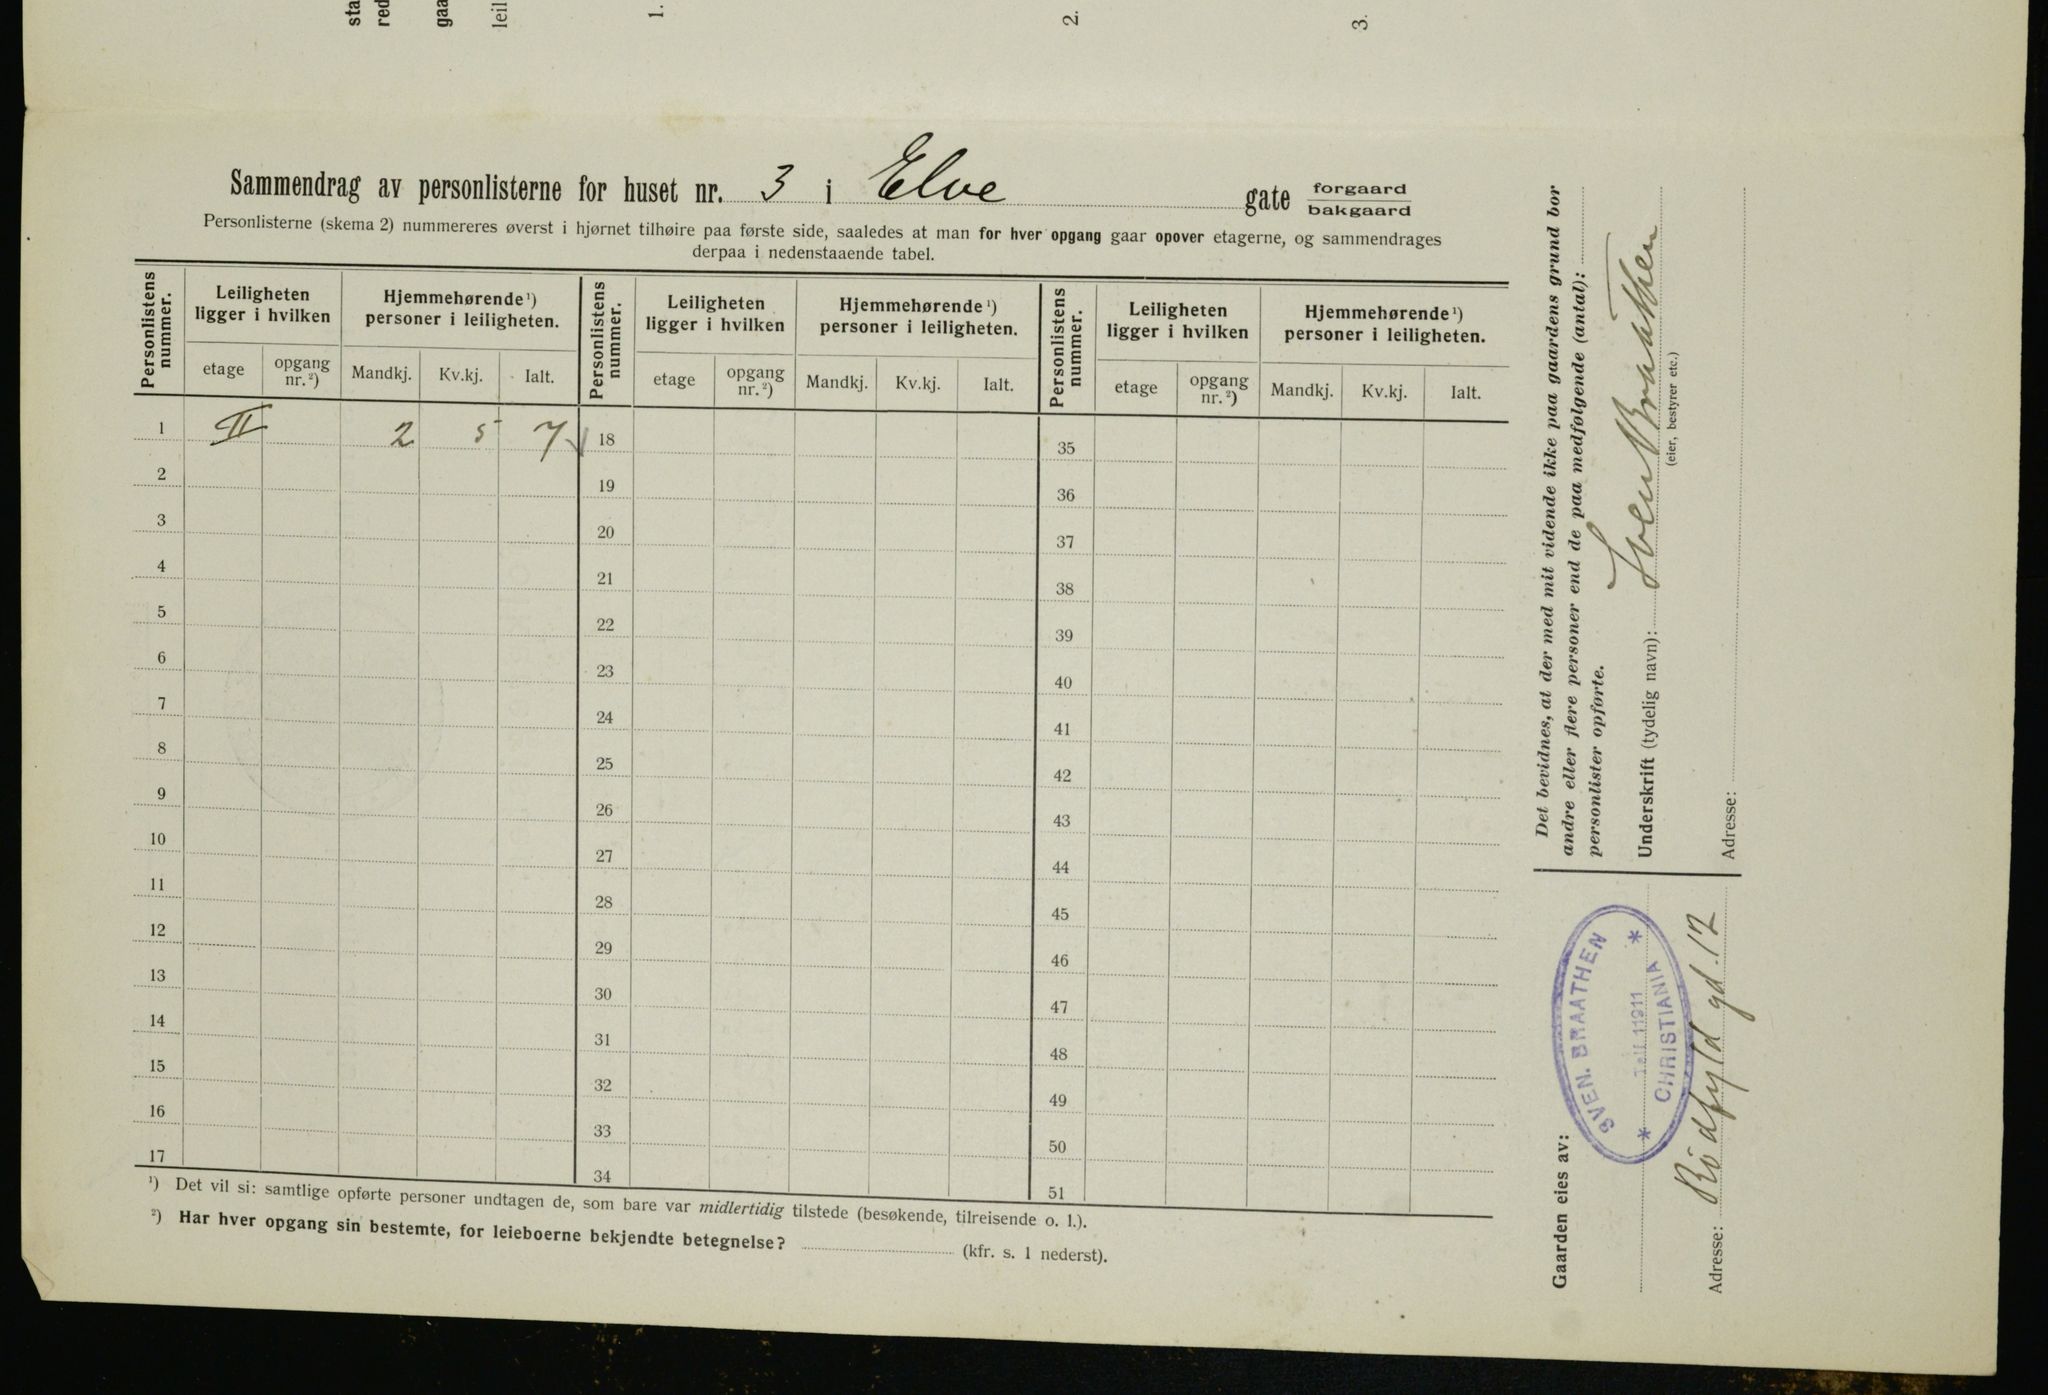 sta
red
gaa
leil
1.
2.
3.
Sammendrag av personlisterne for huset nr. 3 i Elve gate forgaard
bakgaard
Personlisterne (skema 2) nummereres øverst i hjørnet tilhøire paa første side, saaledes at man for hver opgang gaar opover etagerne, og sammendrages
derpaa i nedenstaaende tabel.
Personlistens nummer. Leiligheten ligger i hvilken Hjemmehørende ¹) personer i leiligheten. Personlistens nummer. Leiligheten ligger i hvilken Hjemmehørende ¹) personer i leiligheten. Personlistens nummer. Leiligheten ligger i hvilken Hjemmehørende ¹) personer i leiligheten.
etage opgang nr. ²) Mandkj. Kv.kj. Ialt. etage opgang nr. ²) Mandkj. Kv.kj. Ialt. etage opgang nr. ²) Mandkj. Kv.kj. Ialt.
1 II 2 5 7 ✓ 18 35
2 19 36
3 20 37
4 21 38
5 22 39
6 23 40
7 24 41
8 25 42
9 26 43
10 27 44
11 28 45
12 29 46
13 30 47
14 31 48
15 32 49
16 33 50
17 34 51
¹) Det vil si: samtlige opførte personer undtagen de, som bare var midlertidig tilstede (besøkende, tilreisende o. l.).
²) Har hver opgang sin bestemte, for leieboerne bekjendte betegnelse? (kfr. s. 1 nederst).
Det bevidnes, at der med mit vidende ikke paa gaardens grund bor
andre eller flere personer end de paa medfølgende (antal):
personlister opførte.
Underskrift (tydelig navn): Sven Braathen
(eier, bestyrer etc.)
Adresse:
Gaarden eies av:
SVEN. BRAATHEN
Telf 11911
* CHRISTIANIA *
Adresse: Rödfyld gd. 12